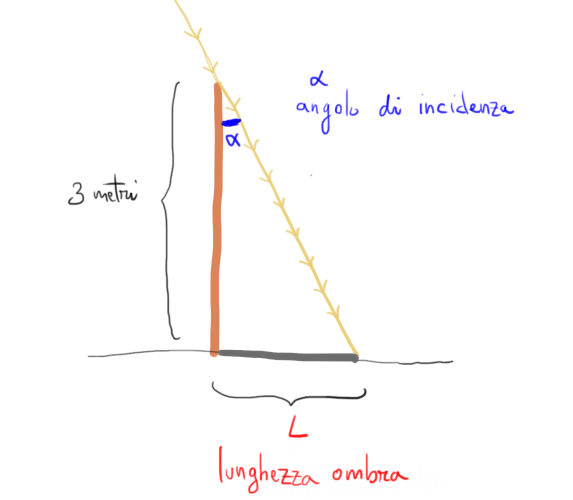 α
angolo di incidenza
α
3 metri
L
lunghezza ombra